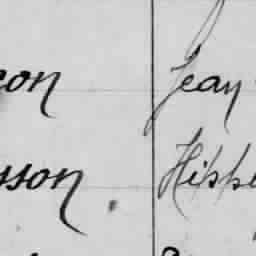 eon Jean
sson. Hipp